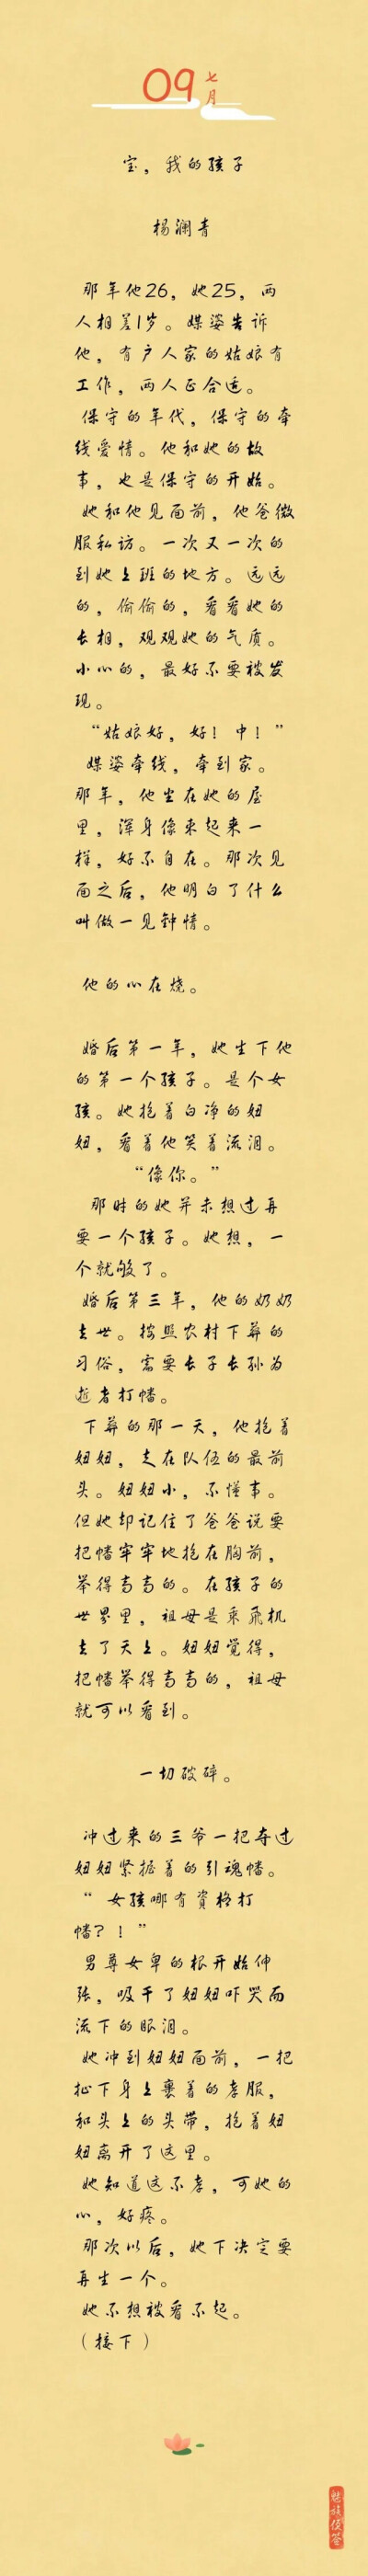 09 七月
宝，我的孩子
杨澜青
那年他26，她25，两
人相差1岁。媒婆告诉
他，有户人家的姑娘有
工作，两人正合适。
保守的年代，保守的牵
线爱情。他和她的故
事，也是保守的开始。
她和他见面前，他爸微
服私访。一次又一次的
到她上班的地方。远远
的，偷偷的，看看她的
长相，观观她的气质。
小心的，最好不要被发
现。
“姑娘好，好！中！”
媒婆牵线，牵到家。
那年，他坐在她的屋
里，浑身像束起来一
样，好不自在。那次见
面之后，他明白了什么
叫做一见钟情。
他的心在烧。
婚后第一年，她生下他
的第一个孩子。是个女
孩。她抱着白净的妞
妞，看着他笑着流泪。
“像你。”
那时的她并未想过再
要一个孩子。她想，一
个就够了。
婚后第三年，他的奶奶
去世。按照农村下葬的
习俗，需要长子长孙为
逝者打幡。
下葬的那一天，他抱着
妞妞，走在队伍的最前
头。妞妞小，不懂事。
但她却记住了爸爸说要
把幡牢牢地抱在胸前，
举得高高的。在孩子的
世界里，祖母是乘飞机
去了天上。妞妞觉得，
把幡举得高高的，祖母
就可以看到。
一切破碎。
冲过来的三爷一把夺过
妞妞紧握着的引魂幡。
“ 女孩哪有资格打
幡？！”
男尊女卑的根开始伸
张，吸干了妞妞吓哭而
流下的眼泪。
她冲到妞妞面前，一把
扯下身上裹着的孝服，
和头上的头带，抱着妞
妞离开了这里。
她知道这不孝，可她的
心，好疼。
那次以后，她下决定要
再生一个。
她不想被看不起。
（接下）
魅族便签